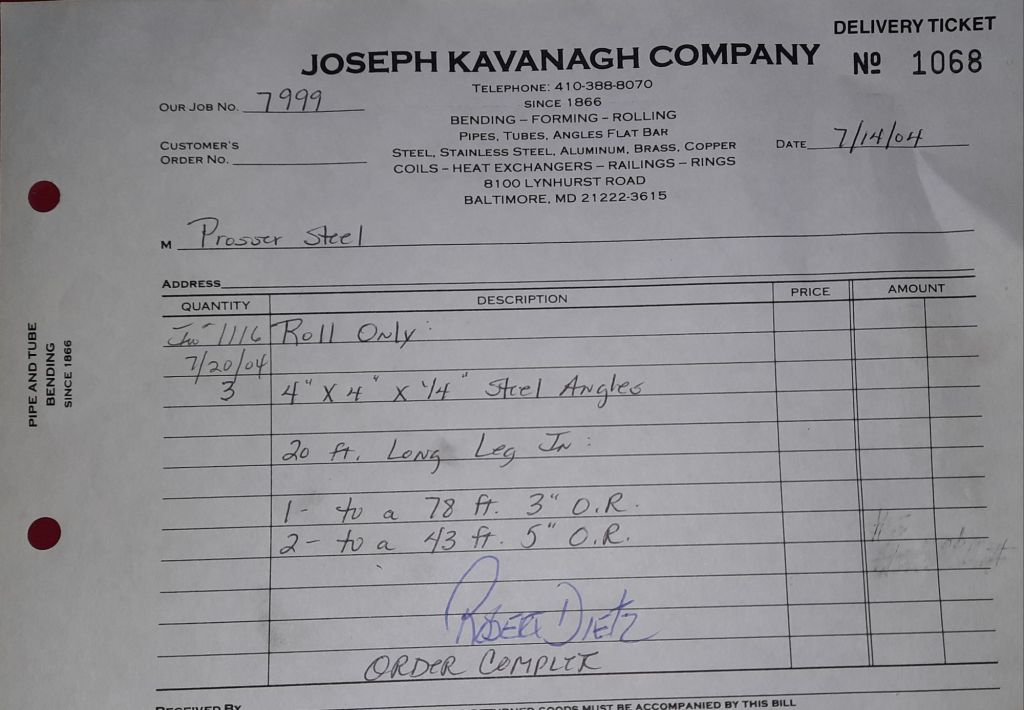 DELIVERY TICKET
JOSEPH KAVANAGH COMPANY
Nº 1068
TELEPHONE: 410-388-8070
OUR JOB NO. 7999
SINCE 1866
BENDING – FORMING – ROLLING
PIPES, TUBES, ANGLES FLAT BAR
CUSTOMER'S
ORDER NO.
STEEL, STAINLESS STEEL, ALUMINUM, BRASS, COPPER
DATE 7/14/04
COILS – HEAT EXCHANGERS – RAILINGS – RINGS
8100 LYNHURST ROAD
BALTIMORE, MD 21222-3615
M Prosser Steel
ADDRESS
QUANTITY DESCRIPTION PRICE AMOUNT
1116 Roll Only:
7/20/04
3 4" X 4" X 1/4" Steel Angles
20 ft. Long Leg In:
1- to a 78 ft. 3" O.R.
2- to a 43 ft. 5" O.R.
ROBERT DIETZ
ORDER COMPLETE
RECEIVED BY GOODS MUST BE ACCOMPANIED BY THIS BILL
PIPE AND TUBE
BENDING
SINCE 1866